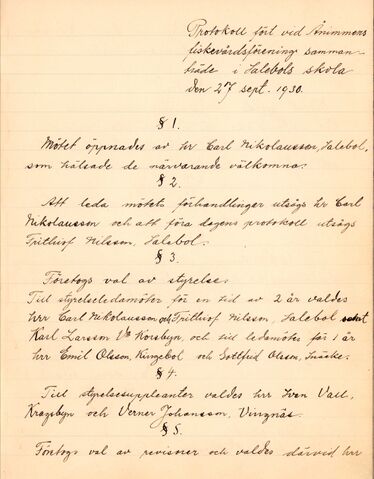 Protokoll fört vid Ånimmens
fiskevårdsförening samman-
träde i Halebols skola
den 27 sept. 1930.
§ 1.
Mötet öppnades av hr Carl Nikolausson, Halebol,
som hälsade de närvarande välkomna.
§ 2.
Att leda mötets förhandlingar utsågs hr Carl
Nikolausson och att föra dagens protokoll utsågs
Frithiof Nilsson, Halebol.
§ 3.
Företogs val av styrelse.
Till styrelseledamöter för en tid av 2 år valdes
hrr Carl Nikolausson och Frithiof Nilsson, Halebol samt
Karl Larsson Va Korsbyn, och till ledamöter för 1 år
hrr Emil Olsson, Ringebol och Gottfrid Olsson, Snäcke.
§ 4.
Till styrelsesuppleanter valdes hrr Sven Vall,
Kragsbyn och Verner Johansson, Vingnäs.
§ 5.
Företogs val av revisorer och valdes därvid hrr